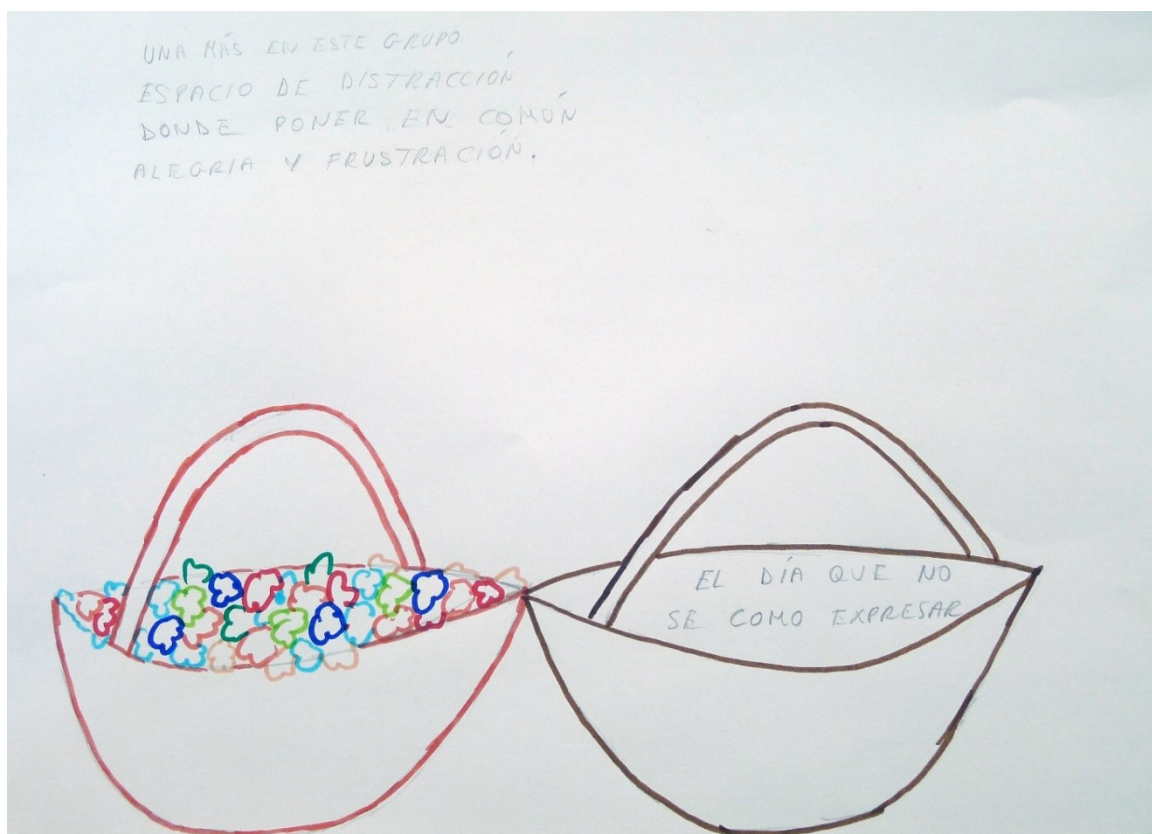 UNA MÁS EN ESTE GRUPO
ESPACIO DE DISTRACCIÓN
DONDE PONER EN COMÚN
ALEGRIA Y FRUSTRACIÓN.
EL DÍA QUE NO
SE COMO EXPRESAR